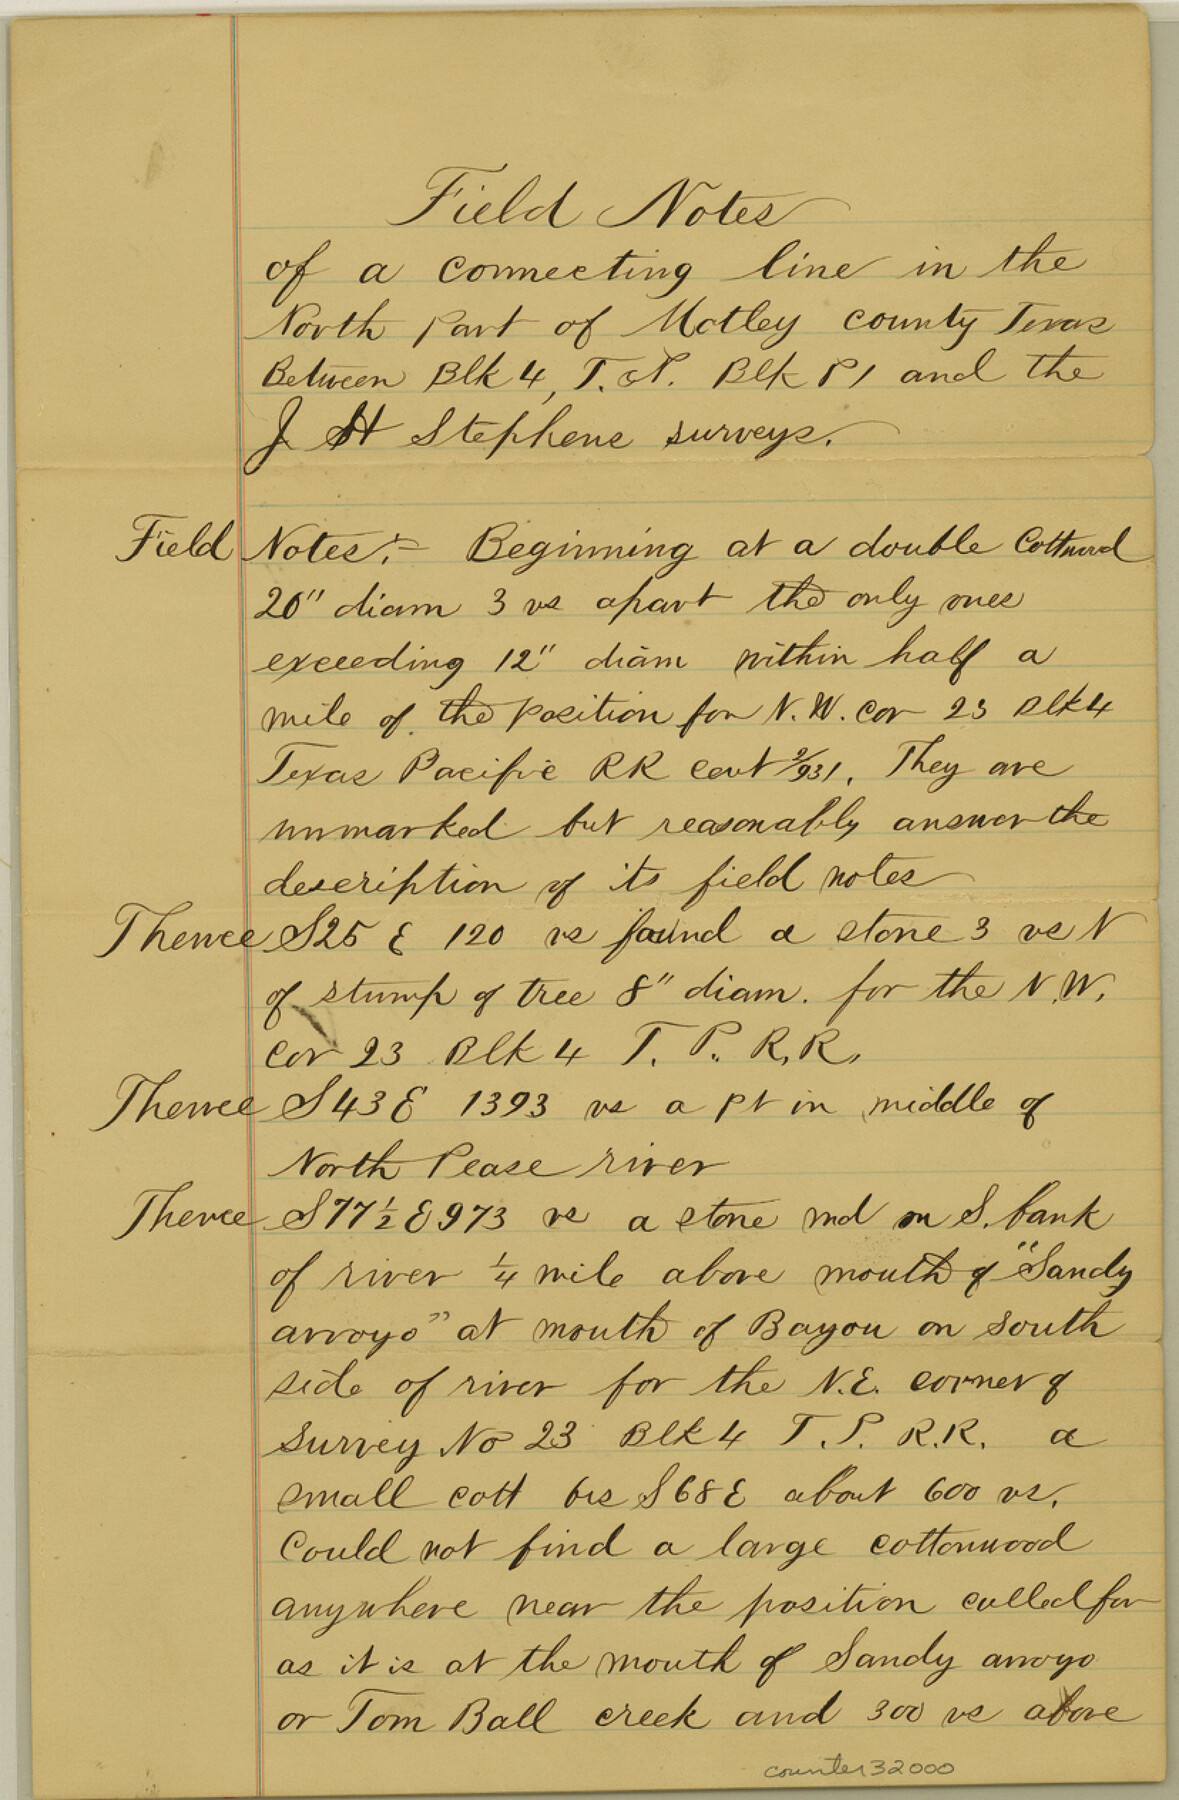 Field Notes
of a connecting line in the
North part of Motley county Texas
Between Blk 4, T. & P. Blk P1 and the
J H Stephens surveys.
Field Notes:- Beginning at a double Cottnwd
20" diam 3 vs apart the only ones
exceeding 12" diam within half a
mile of the position for N.W. cor 23 Blk 4
Texas Pacific RR cert 2/931. They are
unmarked but reasonably answer the
description of its field notes
Thence S25 E 120 vs found a stone 3 vs N
of stump of tree 8" diam. for the N.W.
cor 23 Blk 4 T. P. R.R.
Thence S43E 1393 vs a pt in middle of
North Pease river
Thence S77½E 973 vs a stone md on S. bank
of river ¼ mile above mouth of "Sandy
arroyo" at mouth of Bayou on south
side of river for the N.E. corner of
survey No 23 Blk 4 T.P. R.R. a
small cott brs S68E about 600 vs.
Could not find a large cottonwood
anywhere near the position called for
as it is at the mouth of Sandy arroyo
or Tom Ball creek and 300 vs above
counter 32000